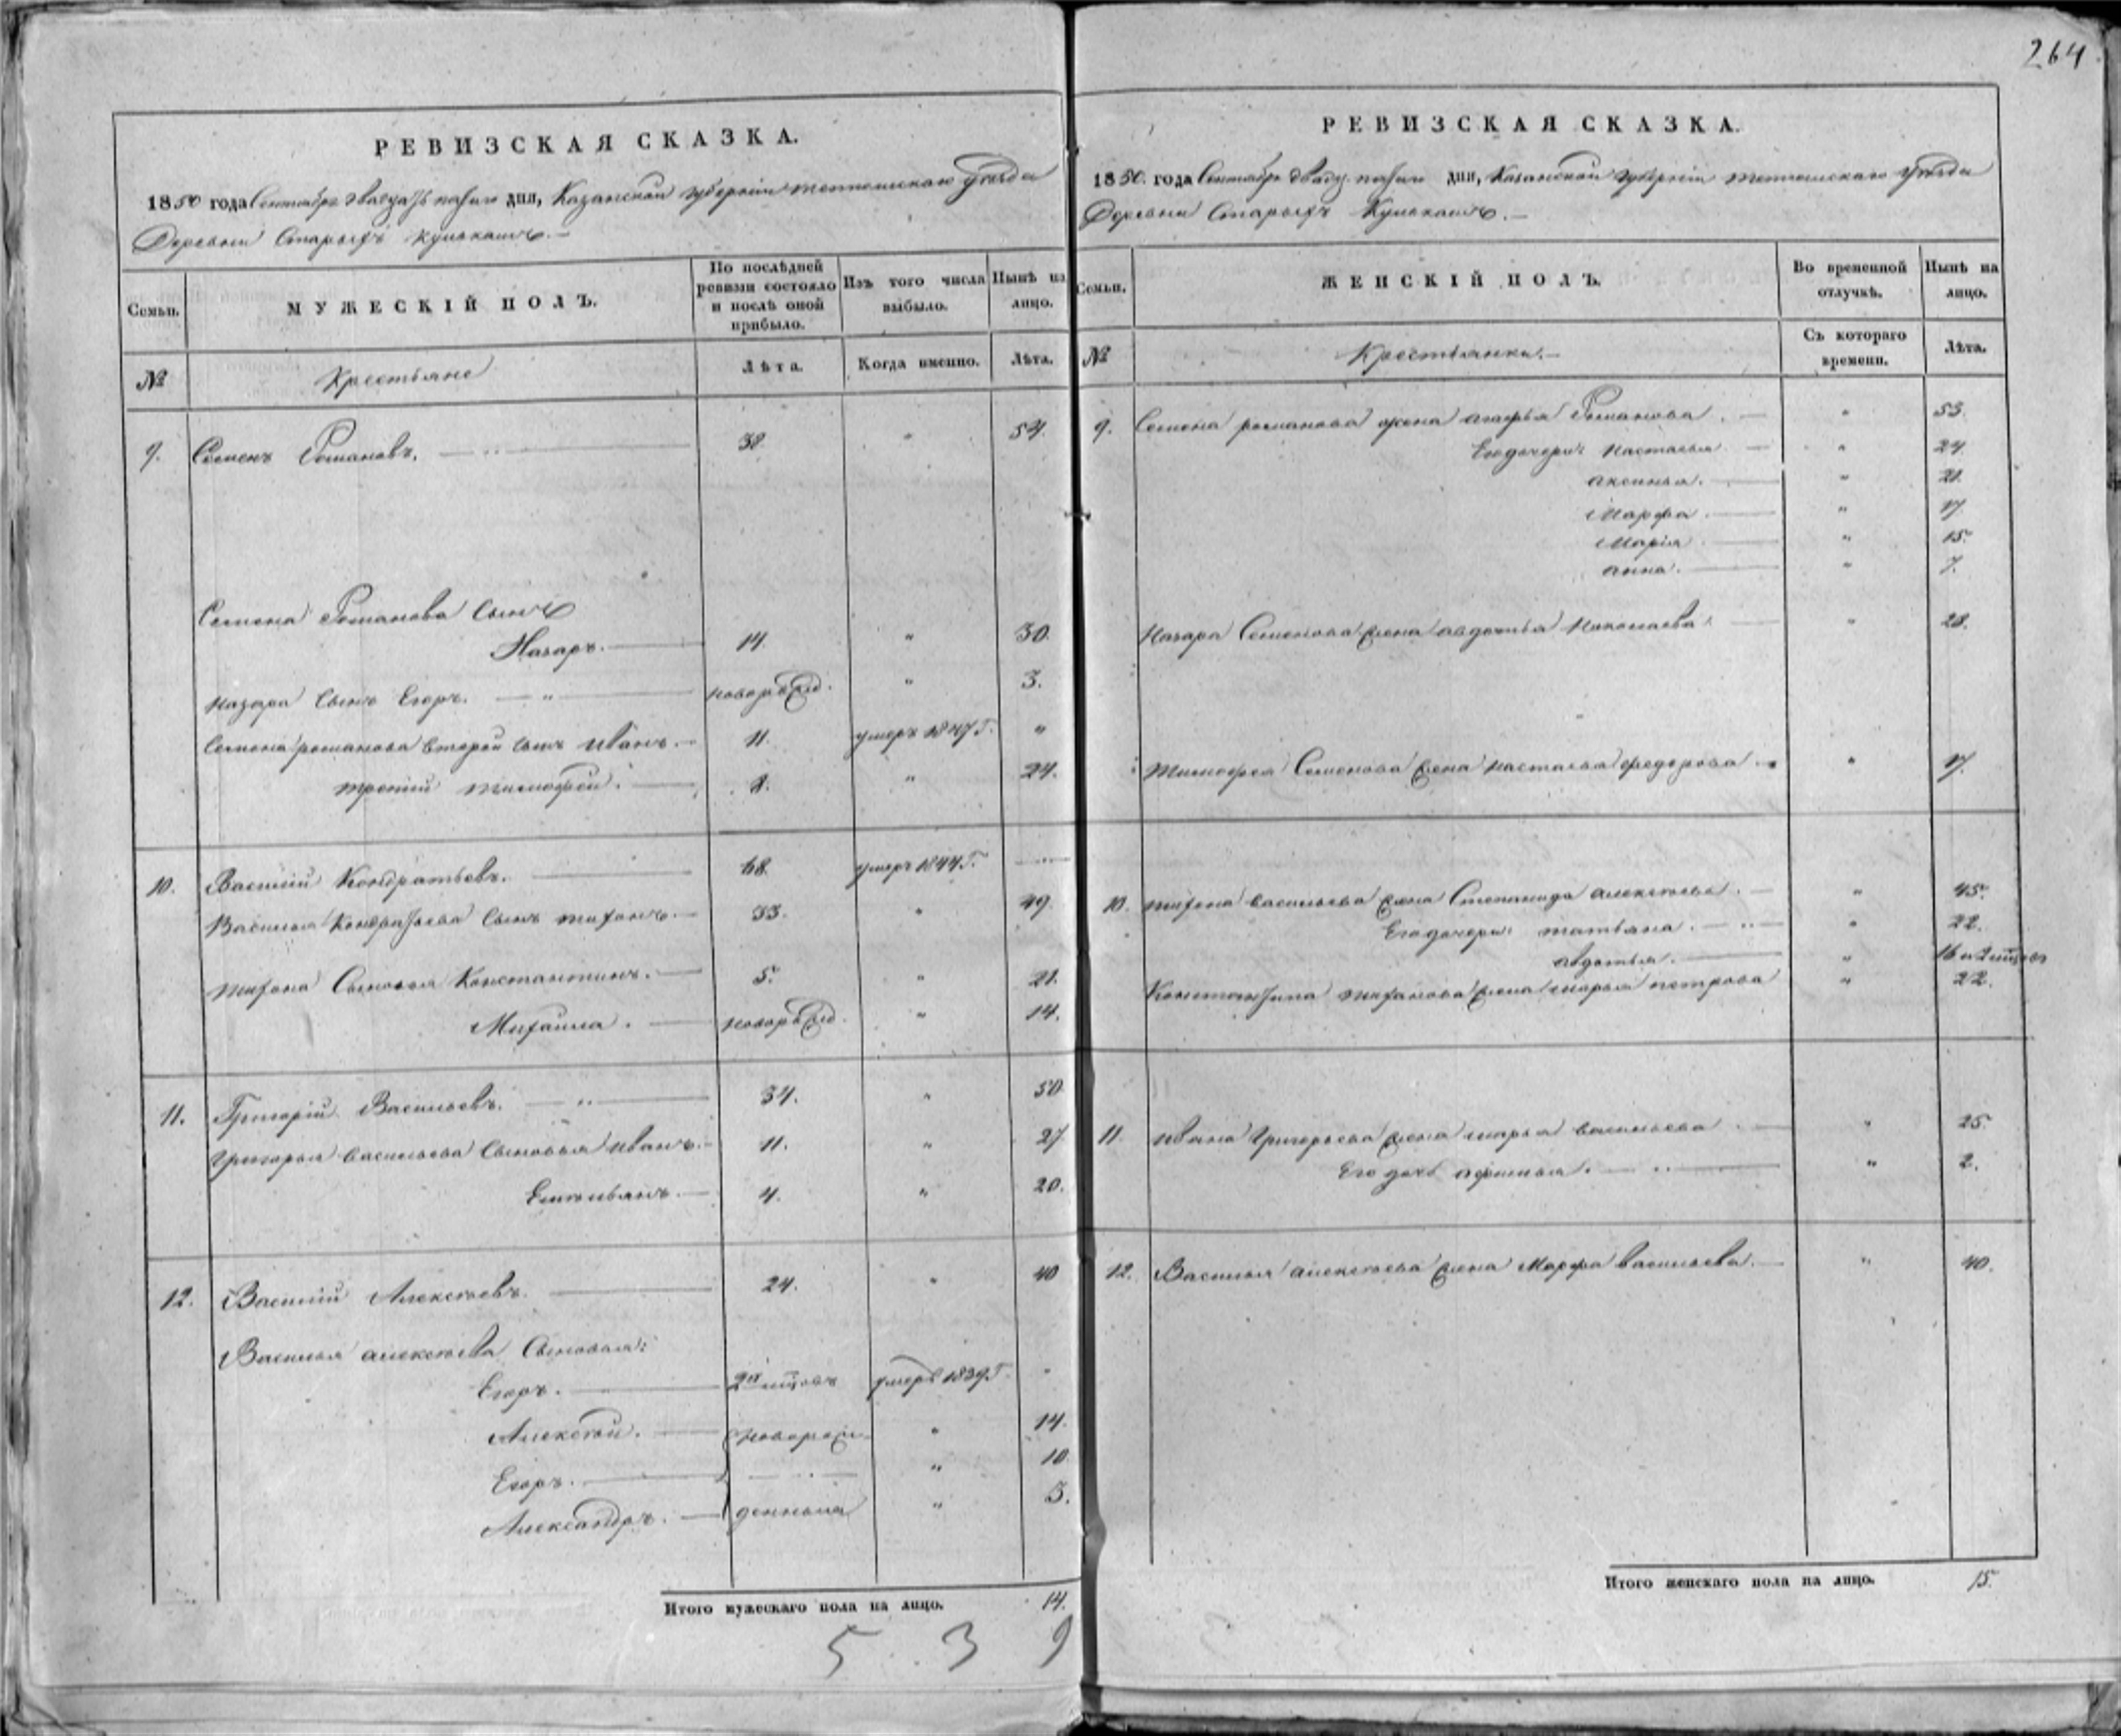 264
РЕВИЗСКАЯ СКАЗКА.
1850 года Сентября двадцать пятаго дня, Казанской губерніи тетюшскаго уѣзда
Деревни Старыхъ
Семьи. МУЖЕСКІЙ ПОЛЪ. По послѣдней ревизіи состояло и послѣ оной прибыло. Изъ того числа выбыло. Нынѣ на лицо.
№ Крестьяне Лѣта. Когда именно. Лѣта.
9. Семенъ Романовъ. 38 " 54.
Семена Романова Сынъ
Назаръ. 14. " 30.
Назара Сынъ Егоръ. " новорожд. " 3.
Семена романова второй сынъ иванъ. 11. умеръ 1847 Г. "
третій тимофей. 8. " 24.
10. Василій Кондратьевъ. 68. умеръ 1844 Г.
Василья Кондратьева Сынъ тихонъ. 33. " 49.
тихона Сыновья Константинъ. 5. " 21.
Михаила. новорожд. " 14.
11. Григорій Васильевъ. " 34. " 50
Григорья васильева Сыновья иванъ. 11. " 27
Емельянъ. 4. " 20.
12. Василій Алексѣевъ. 24. " 40
Василья алексѣева Сыновья:
Егоръ. 2х мѣсяцъ умеръ 1839 Г. "
Алексѣй. новорож- " 14.
Егоръ. " 10
Александръ. денныя " 3.
Итого мужескаго пола на лицо. 14.
5 . 3 9
РЕВИЗСКАЯ СКАЗКА.
1850. года Сентября двадц. пятаго дня, Казанской губерніи тетюшскаго уѣзда
Деревни Старыхъ
Семьи. ЖЕНСКІЙ ПОЛЪ. Во временной отлучкѣ. Нынѣ на лицо.
№ Крестьянки. Съ котораго времени. Лѣта.
9. Семена романова жена агафья Романова. " 53.
Его дочери: настасья " 24.
аксинья. " 21.
Марфа. " 17.
Марія " 15.
анна. " 7.
Назара Семенова жена авдотья Николаева. " 28.
тимофея Семенова жена настасья федорова. " 17.
10. тихона васильева жена Степанида алексѣева. " 45.
Его дочери: татьяна. " " 22.
авдотья. " 16 и 2 мѣсяц
Константина тихонова жена марья петрова " 22.
11. ивана Григорьева жена марья васильева. " 25.
Его дочь афимья. " " 2.
12. Василья алексѣева жена Марфа васильева. " 40.
Итого женскаго пола на лицо. 15.